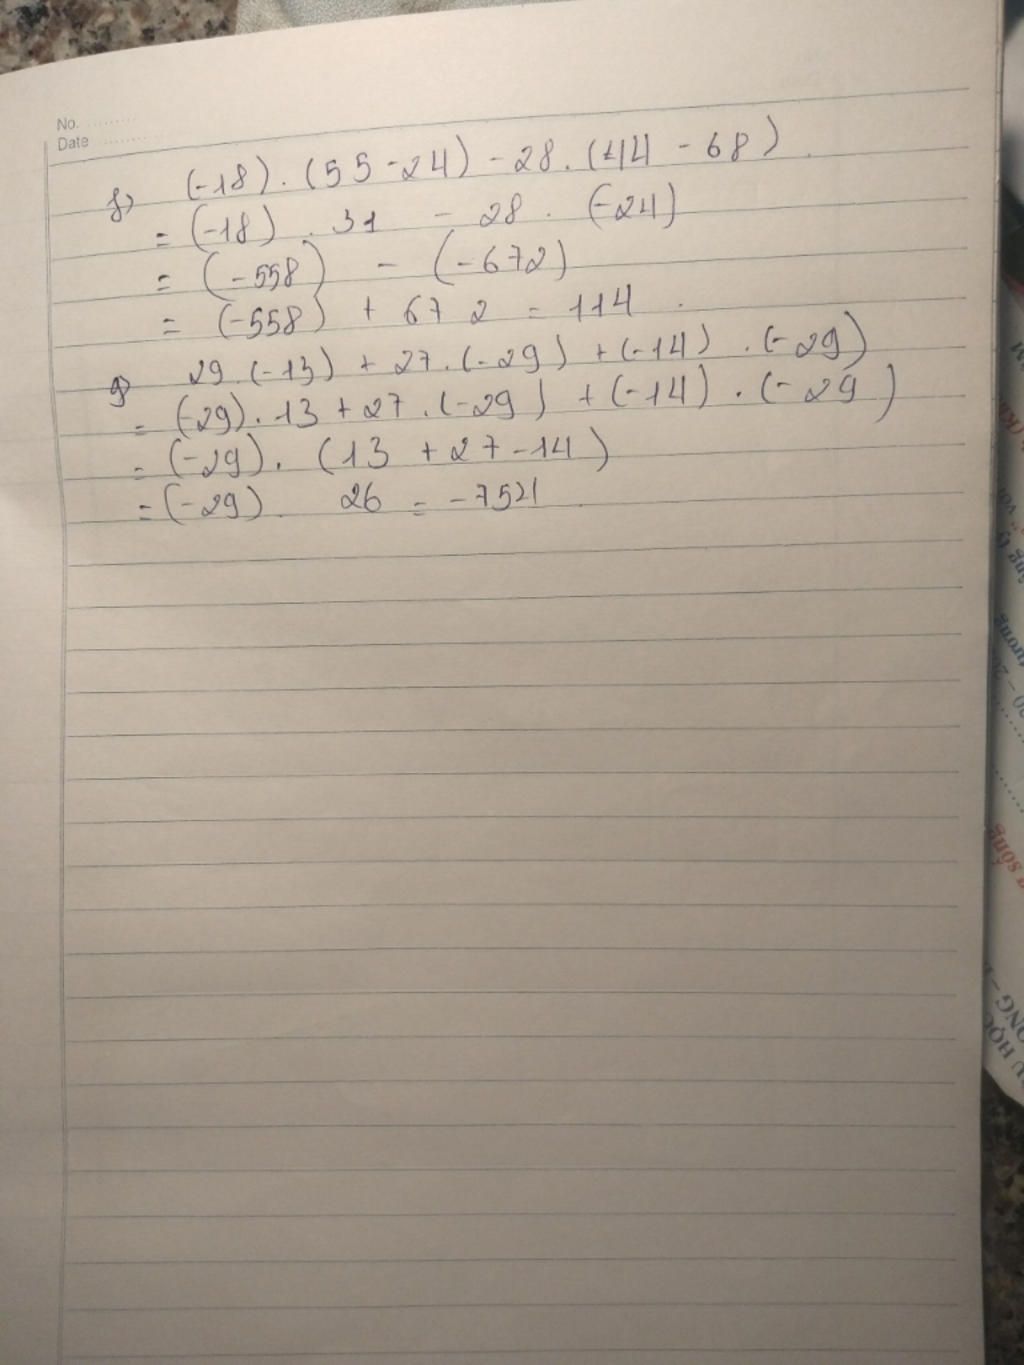 No. ..........
Date ..........
f) (-18).(55-24)-28.(44-68)
= (-18) . 31 - 28 . (-24)
= (-558) - (-672)
= (-558) + 672 = 114 .
g) 29.(-13) + 27.(-29) + (-14) . (-29)
= (-29).13 + 27.(-29) + (-14) . (-29)
= (-29). (13 + 27 - 14)
= (-29). 26 = -754